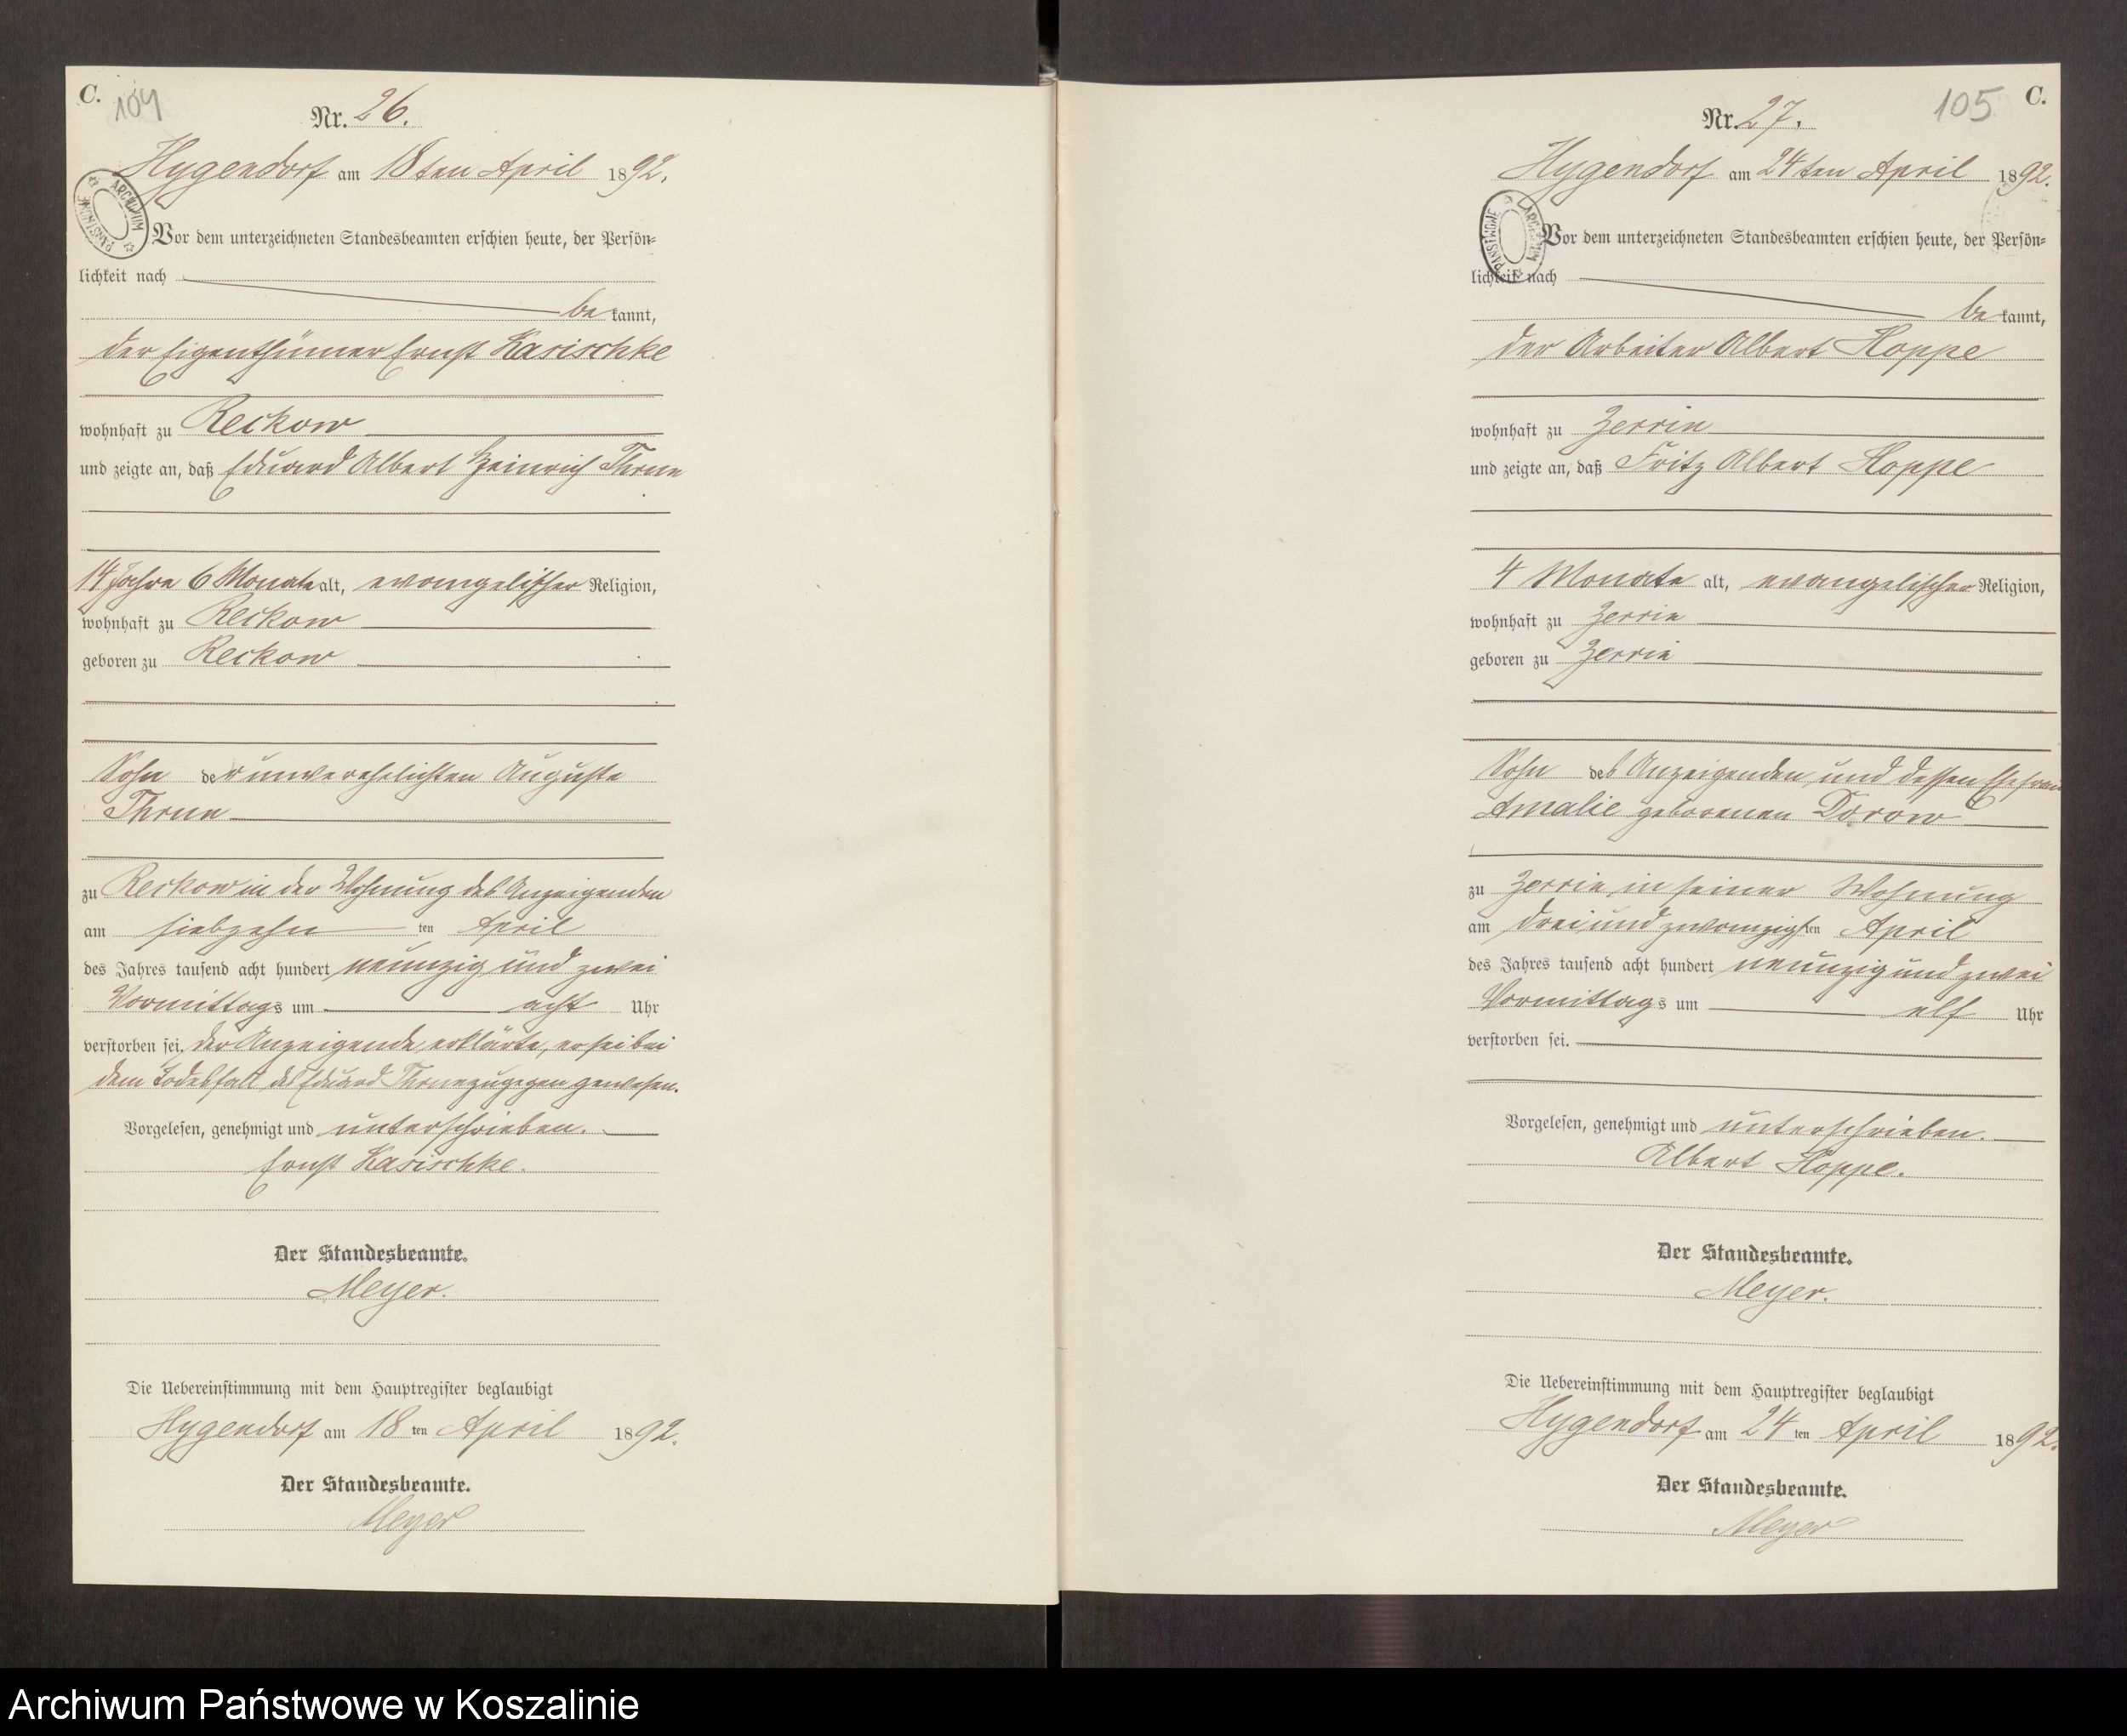 C.
104
Nr. 26.
Hygendorf am 18ten April 1892.
ARCHIWUM PAŃSTWOWE
Vor dem unterzeichneten Standesbeamten erschien heute, der Persön-
lichkeit nach
be kannt,
der Eigenthümer Ernst Kasischke
wohnhaft zu Reckow
und zeigte an, daß Eduard Albert Heinrich Thrun
14 Jahre 6 Monate alt, evangelischer Religion,
wohnhaft zu Reckow
geboren zu Reckow
Sohn der unverehelichten Auguste
Thrun
zu Reckow in der Wohnung des Anzeigenden
am siebzehn ten April
des Jahres tausend acht hundert neunzig und zwei
Vormittags um acht Uhr
verstorben sei. Der Anzeigende erklärte, er sei bei
dem Todesfall des Eduard Thrun zugegen gewesen.
Vorgelesen, genehmigt und unterschrieben.
Ernst Kasischke.
Der Standesbeamte.
Meyer.
Die Uebereinstimmung mit dem Hauptregister beglaubigt
Hygendorf am 18 ten April 1892.
Der Standesbeamte.
Meyer
105
C.
Nr. 27.
Hygendorf am 24ten April 1892.
ARCHIWUM PAŃSTWOWE
Vor dem unterzeichneten Standesbeamten erschien heute, der Persön-
lichkeit nach
be kannt,
der Arbeiter Albert Hoppe
wohnhaft zu Zerrin
und zeigte an, daß Fritz Albert Hoppe
4 Monate alt, evangelischer Religion,
wohnhaft zu Zerrin
geboren zu Zerrin
Sohn des Anzeigenden und dessen Ehefrau
Amalie geborenen Dorow
zu Zerrin in seiner Wohnung
am drei und zwanzigsten April
des Jahres tausend acht hundert neunzig und zwei
Vormittags um elf Uhr
verstorben sei.
Vorgelesen, genehmigt und unterschrieben.
Albert Hoppe.
Der Standesbeamte.
Meyer.
Die Uebereinstimmung mit dem Hauptregister beglaubigt
Hygendorf am 24 ten April 1892.
Der Standesbeamte.
Meyer
Archiwum Państwowe w Koszalinie